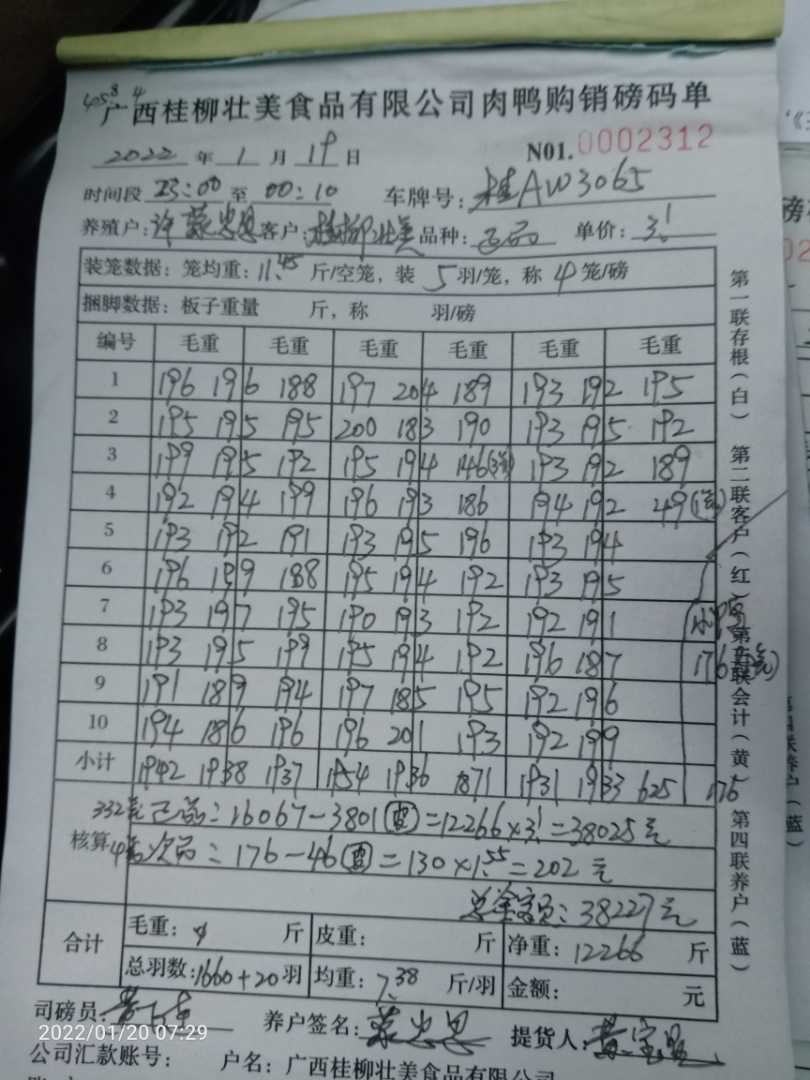 广西桂柳壮美食品有限公司肉鸭购销磅码单
2022 年 1 月 19 日 N01. 0002312
时间段 23:00 至 00:10 车牌号: 桂AW3065
养殖户: 许 客户: 桂柳壮美 品种: 正品 单价: 3.1
装笼数据: 笼均重: 11.45 斤/空笼, 装 5 羽/笼, 称 4 笼/磅
捆脚数据: 板子重量 斤, 称 羽/磅
编号 毛重 毛重 毛重 毛重 毛重 毛重
1 196 196 188 197 204 189 193 192 195
2 195 195 195 200 183 190 193 195 192
3 199 195 192 195 194 146 193 192 189
4 192 194 199 196 193 186 194 192 49
5 193 192 191 193 195 196 193 194
6 196 199 188 195 194 192 193 195
7 193 197 195 190 193 192 192 191
8 193 195 199 195 194 192 196 187 176
9 191 189 194 197 185 195 192 196
10 194 186 196 196 201 193 192 199
小计 1942 1938 1937 1954 1936 1871 1931 1933 625 176
核算
332笼正品: 16067-3801=12266×3.1=38025元
4笼次品: 176-46=130×1.55=202元
总金额: 38227元
合计 毛重: 斤 皮重: 斤 净重: 12266 斤
总羽数: 1660+20 羽 均重: 7.38 斤/羽 金额: 元
司磅员: 养户签名: 提货人:
公司汇款账号: 户名: 广西桂柳壮美食品有限公司
第一联存根(白) 第二联客户(红) 第三联会计(黄) 第四联养户(蓝)
2022/01/20 07:29